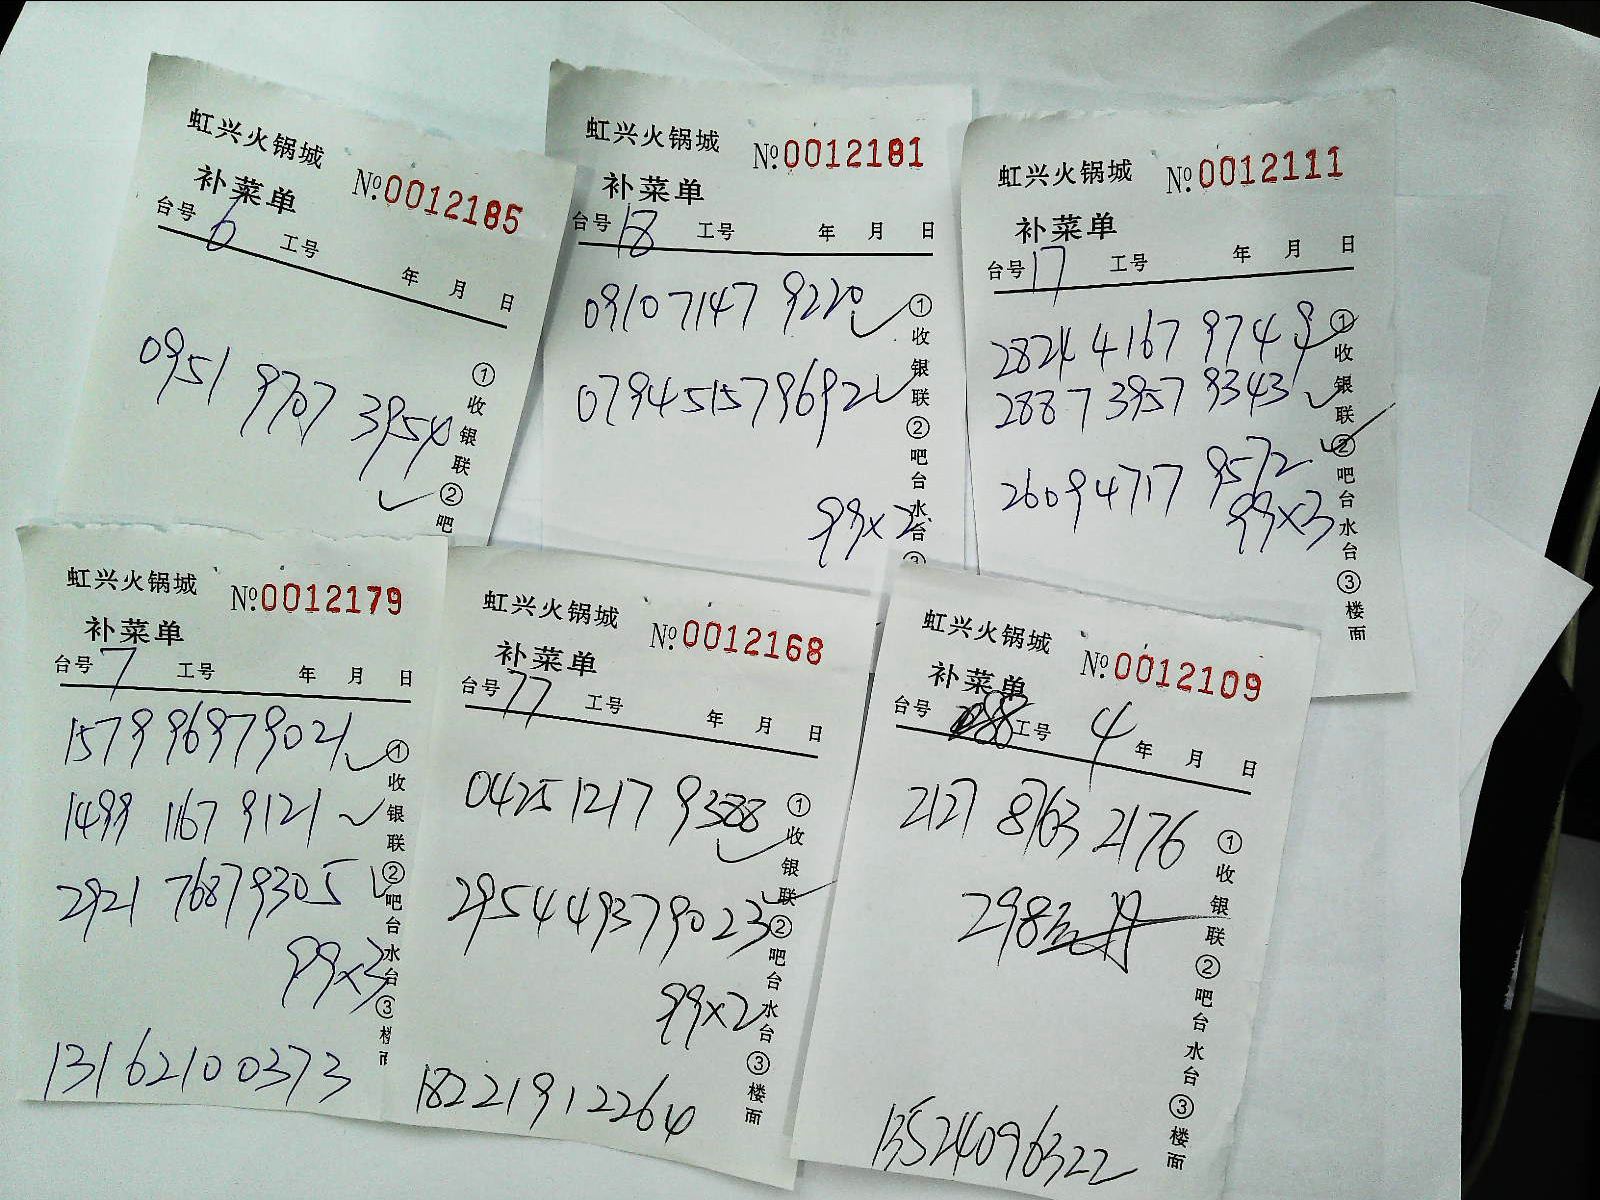 虹兴火锅城
补菜单 №.0012185
台号 6 工号 年 月 日
0951 9707 3954
①收银联②吧
虹兴火锅城
补菜单 №.0012181
台号 18 工号 年 月 日
0910 7147 9220
0794 5157 9692
99×2
①收银联②吧台水台③
虹兴火锅城
补菜单 №.0012111
台号 17 工号 年 月 日
2824 4167 9749
2887 3957 9343
2609 4717 9572
99×3
①收银联②吧台水台③楼面
虹兴火锅城
补菜单 №.0012179
台号 7 工号 年 月 日
1579 9697 9021
1499 1167 9121
2921 7687 9305
99×3
13162100373
①收银联②吧台水台③
虹兴火锅城
补菜单 №.0012168
台号 77 工号 年 月 日
0425 1217 9388
2954 4937 9023
99×2
18221912264
①收银联②吧台水台③楼面
虹兴火锅城
补菜单 №.0012109
台号 工号 4 年 月 日
2127 8763 2176
298
13524096322
①收银联②吧台水台③楼面